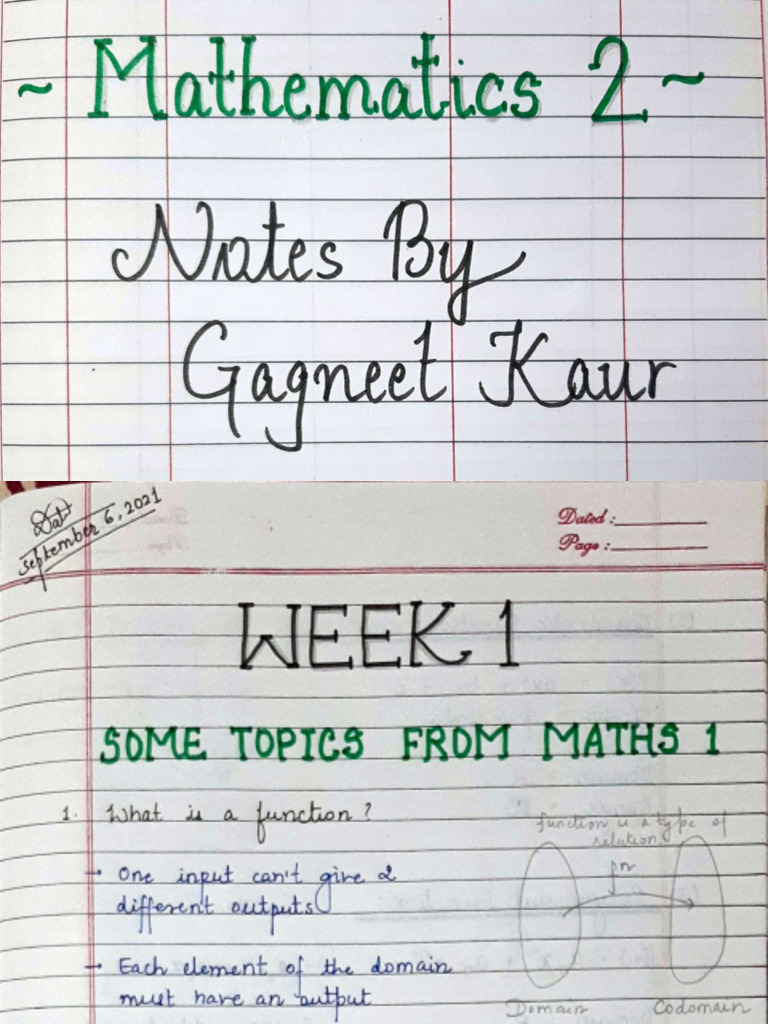 ~ Mathematics 2 ~
Notes By
Gagneet Kaur
September 6, 2021
Dated :
Page :
WEEK 1
SOME TOPICS FROM MATHS 1
1. What is a function ?
function is a type of
relation
fn
→ One input can't give 2
different outputs
→ Each element of the domain
must have an output
Domain
Codomain